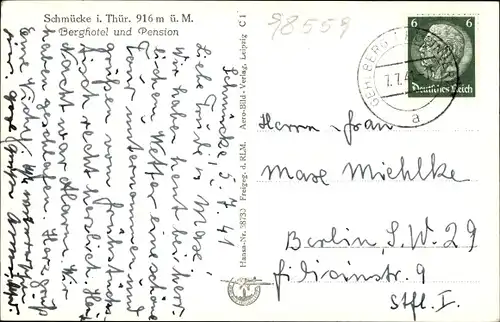 Schmücke i. Thür. 916 m ü. M.
Berghotel und Pension
98559
Schmücke 5.7.41
Liebe Trudi u. Maxe!
Wir haben heut bei herr-
lichem Wetter eine schöne
Tour unternommen und
grüßen vom Frühstücks-
tisch recht herzlich. Heut
Nacht war Alarm. Wir
haben geschlafen. Herz. Grüße
Eure
Hansa-Nr. 38733 Freigeg. d. RLM. Aero-Bild-Verlag, Leipzig C 1
6 6
Deutsches Reich
GEHLBERG
7.7.41
a
Herrn u. Frau
Maxe Miehlke
Berlin, S.W. 29
Fidicinstr. 9
Stfl. I.